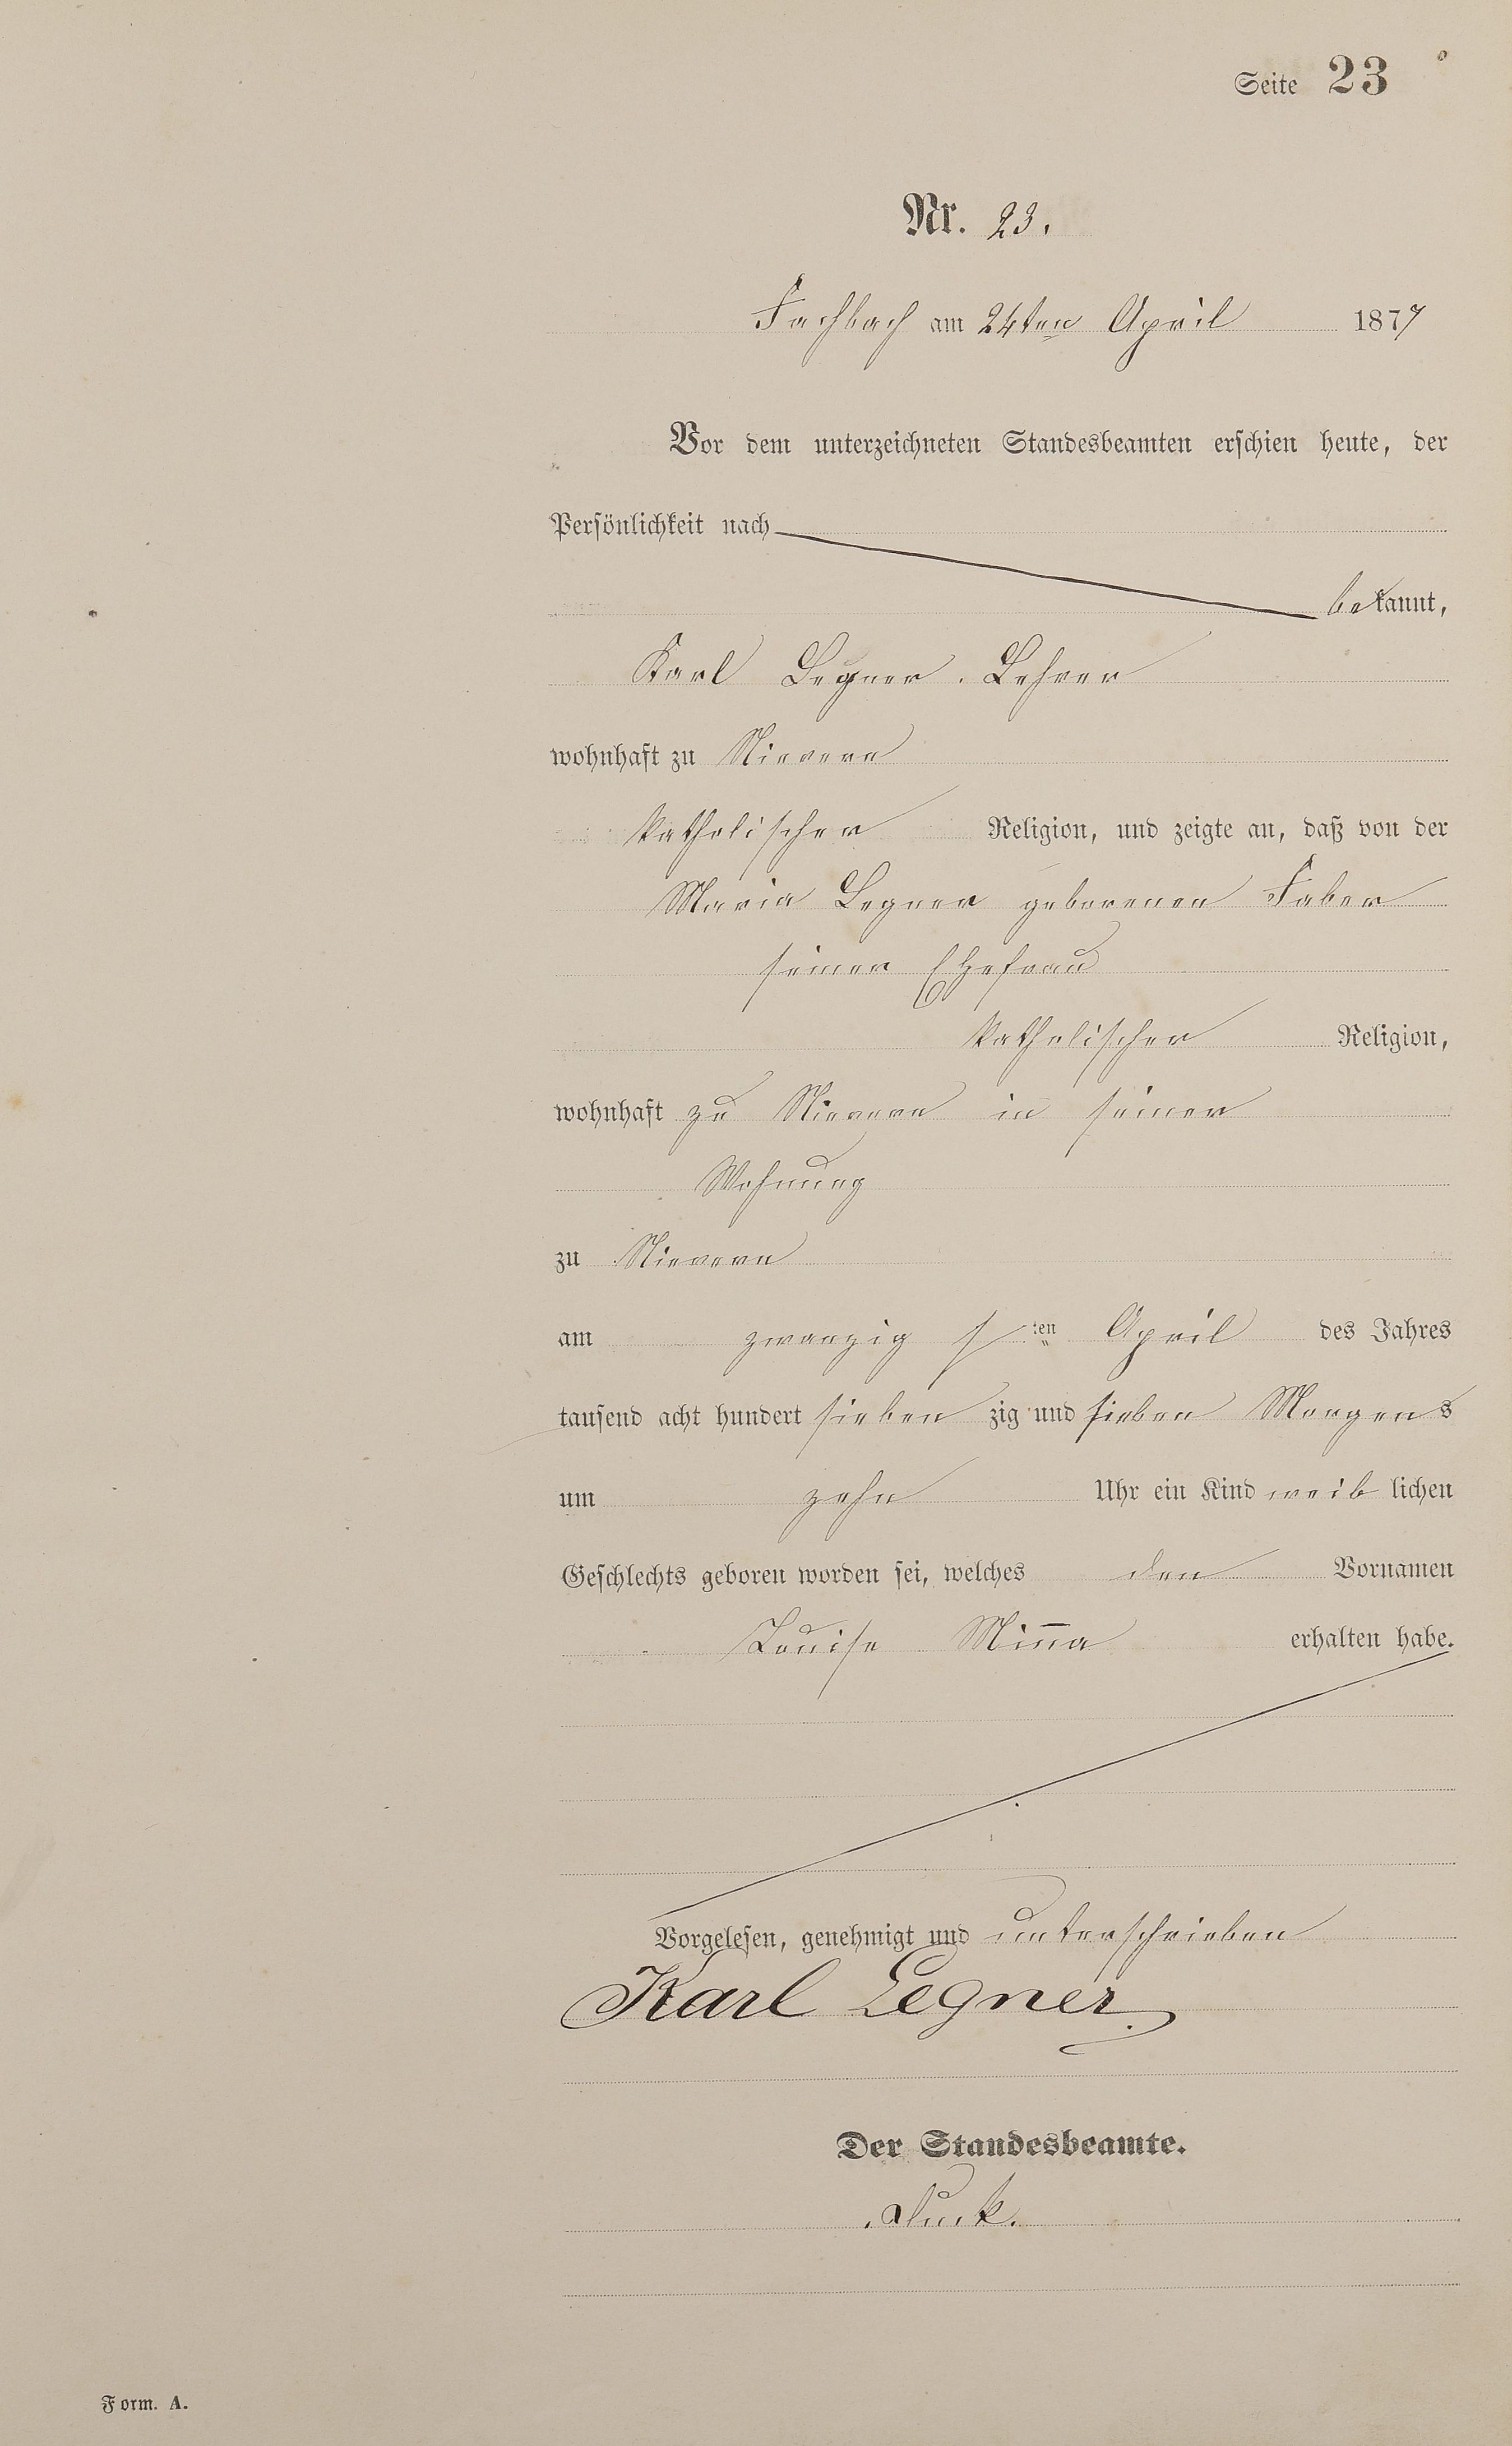 Seite 23
Nr. 23.
Fachbach am 24ten April 1877
Vor dem unterzeichneten Standesbeamten erschien heute, der
Persönlichkeit nach
bekannt,
Karl Legner. Lehrer
wohnhaft zu Nievern
katholischer Religion, und zeigte an, daß von der
Maria Legner geborenen Faber
seiner Ehefrau
katholischer Religion,
wohnhaft zu Nievern in seiner
Wohnung
zu Nievern
am zwanzigsten April des Jahres
tausend acht hundert siebenzig und sieben Morgens
um zehn Uhr ein Kind weiblichen
Geschlechts geboren worden sei, welches den Vornamen
Louise Mina erhalten habe.
Vorgelesen, genehmigt und unterschrieben
Karl Legner
Der Standesbeamte.
Form. A.